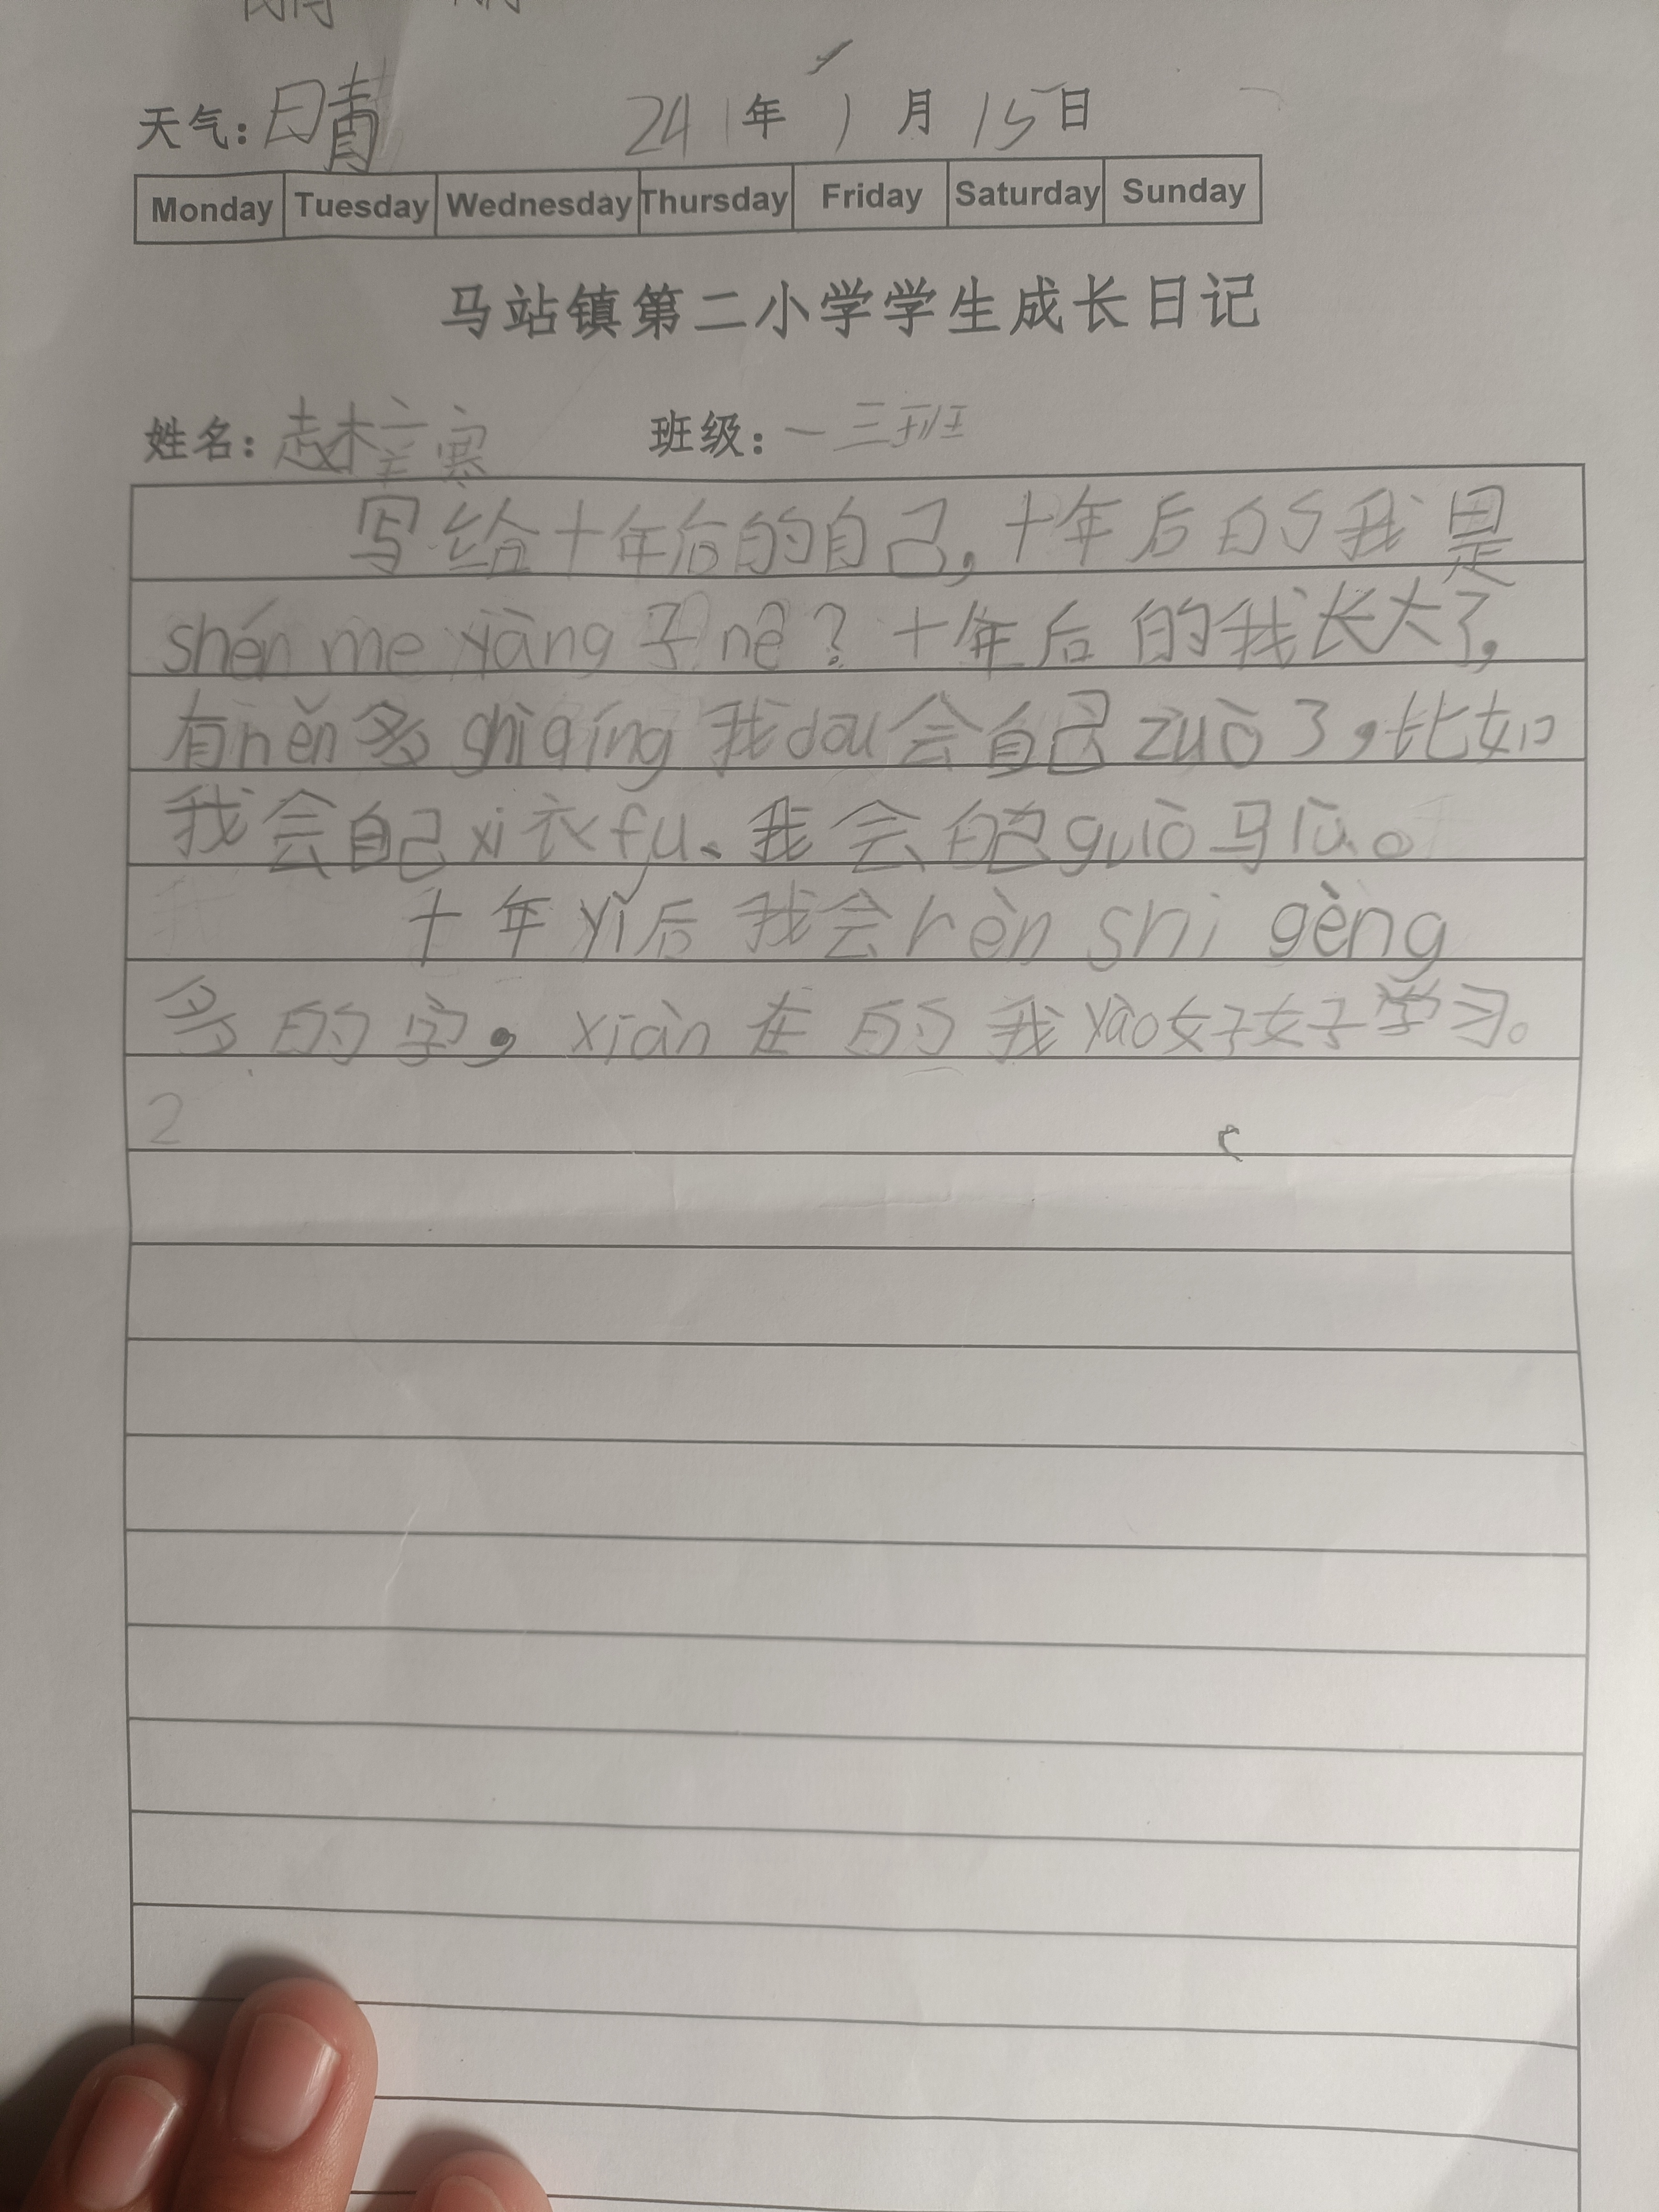 天气：晴 24年1月15日
Monday Tuesday Wednesday Thursday Friday Saturday Sunday
马站镇第二小学学生成长日记
姓名： 班级：一三班
写给十年后的自己，十年后的我是
shén me yàng 子 nē？十年后的我长大了，
有hěn多 shì qíng 我dou会自己 zuò 了，比如
我会自己xi衣fu、我会自己guò马lù。
十年yǐ后我会rèn shi gèng
多的字，xiàn在的我yào好好学习。
2